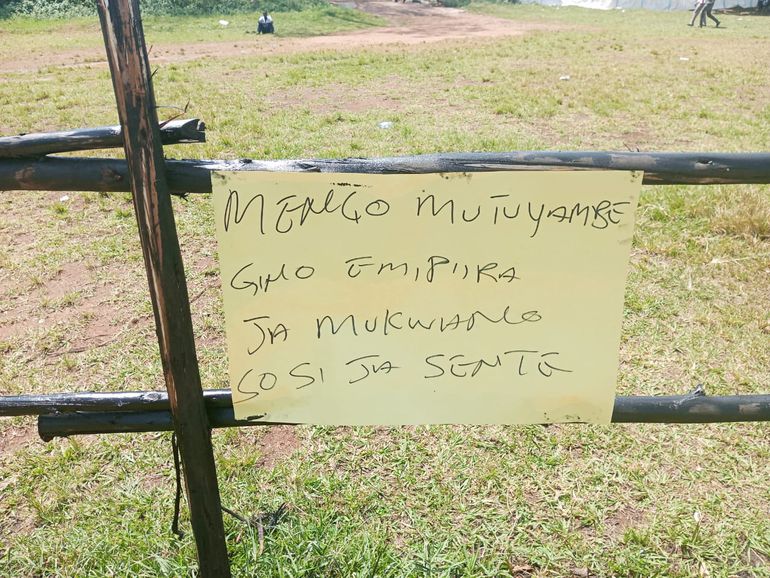 MENGO MUTUYAMBE
GINO EMIPIIRA
JA MUKWANO
SOSI JA SENTE